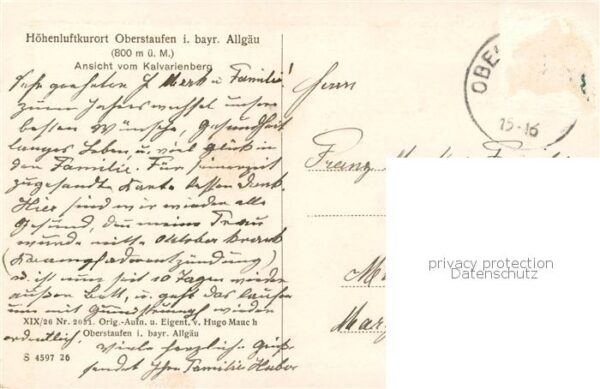 Höhenluftkurort Oberstaufen i. bayr. Allgäu
(800 m ü. M.)
Ansicht vom Kalvarienberg
Sehr geehrter H Merk u Familie!
zum Jahreswechsel unsere
besten Wünsche, Gesundheit
langes Leben, u. viel Glück in
der Familie. Für seinerzeit
zugesandte Karte besten Dank.
Hier sind wir wieder alle
Gesund, denn meine Frau
wurde mitte Oktober krank
(Krampfaderentzündung)
u ist nun seit 10 Tagen wieder
außer Bett, u. geht das laufen
nun mit wieder
XIX/26 Nr. 2651. Orig.-Aufn. u. Eigent. v. Hugo Mauch
Oberstaufen i. bayr. Allgäu
ordentlich.
S 4597 26
Viele herzliche Grüße
sendet Ihre Familie Huber
Herrn
Franz
Mar
OBE
15-16
privacy protection
Datenschutz